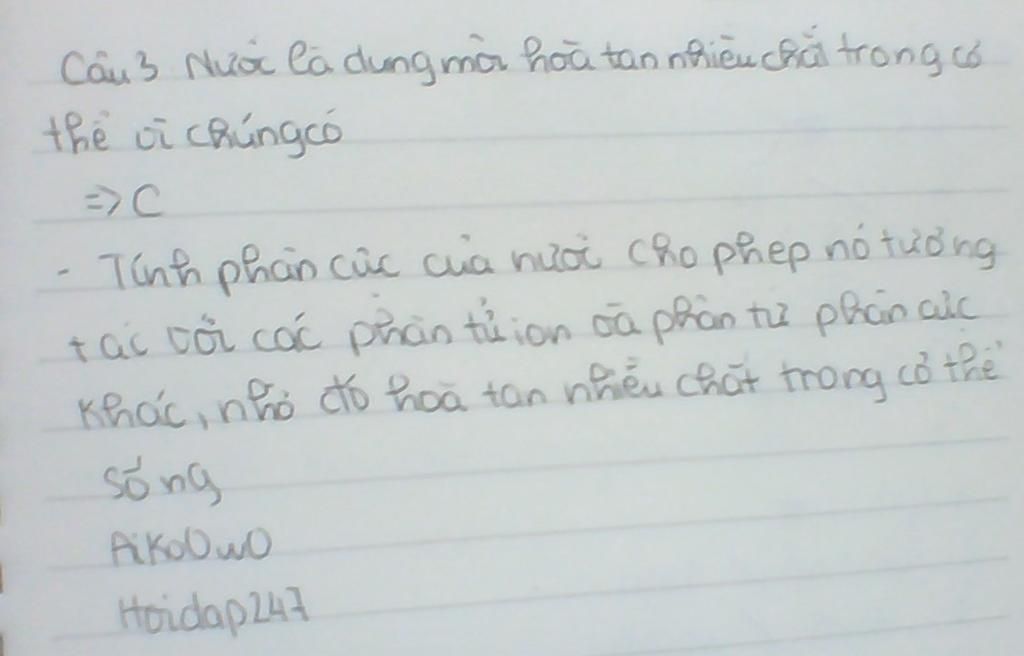 Câu 3 Nước là dung môi hoà tan nhiều chất trong cơ
thể vì chúng có
=> C
- Tính phân cực của nước cho phép nó tương
tác với các phân tử ion và phân tử phân cực
khác, nhờ đó hoà tan nhiều chất trong cơ thể
sống
AikoOwO
Hoidap247